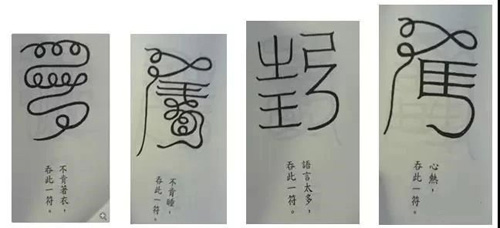 不肯著衣，
吞此一符。
不肯睡，
吞此一符。
語言太多，
吞此一符。
心熱，
吞此一符。